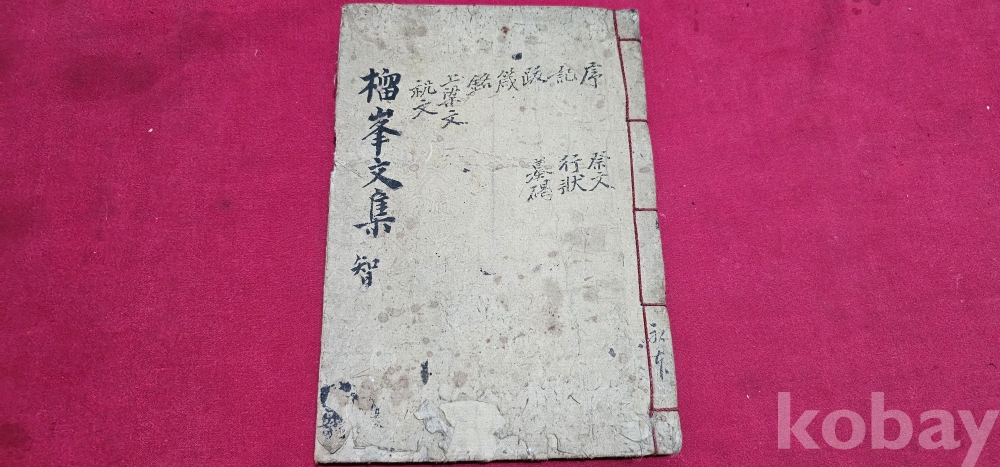 序
記
跋
箴
銘
上梁文
祝文
祭文
行狀
墓碣
榴峯文集 智
kobay